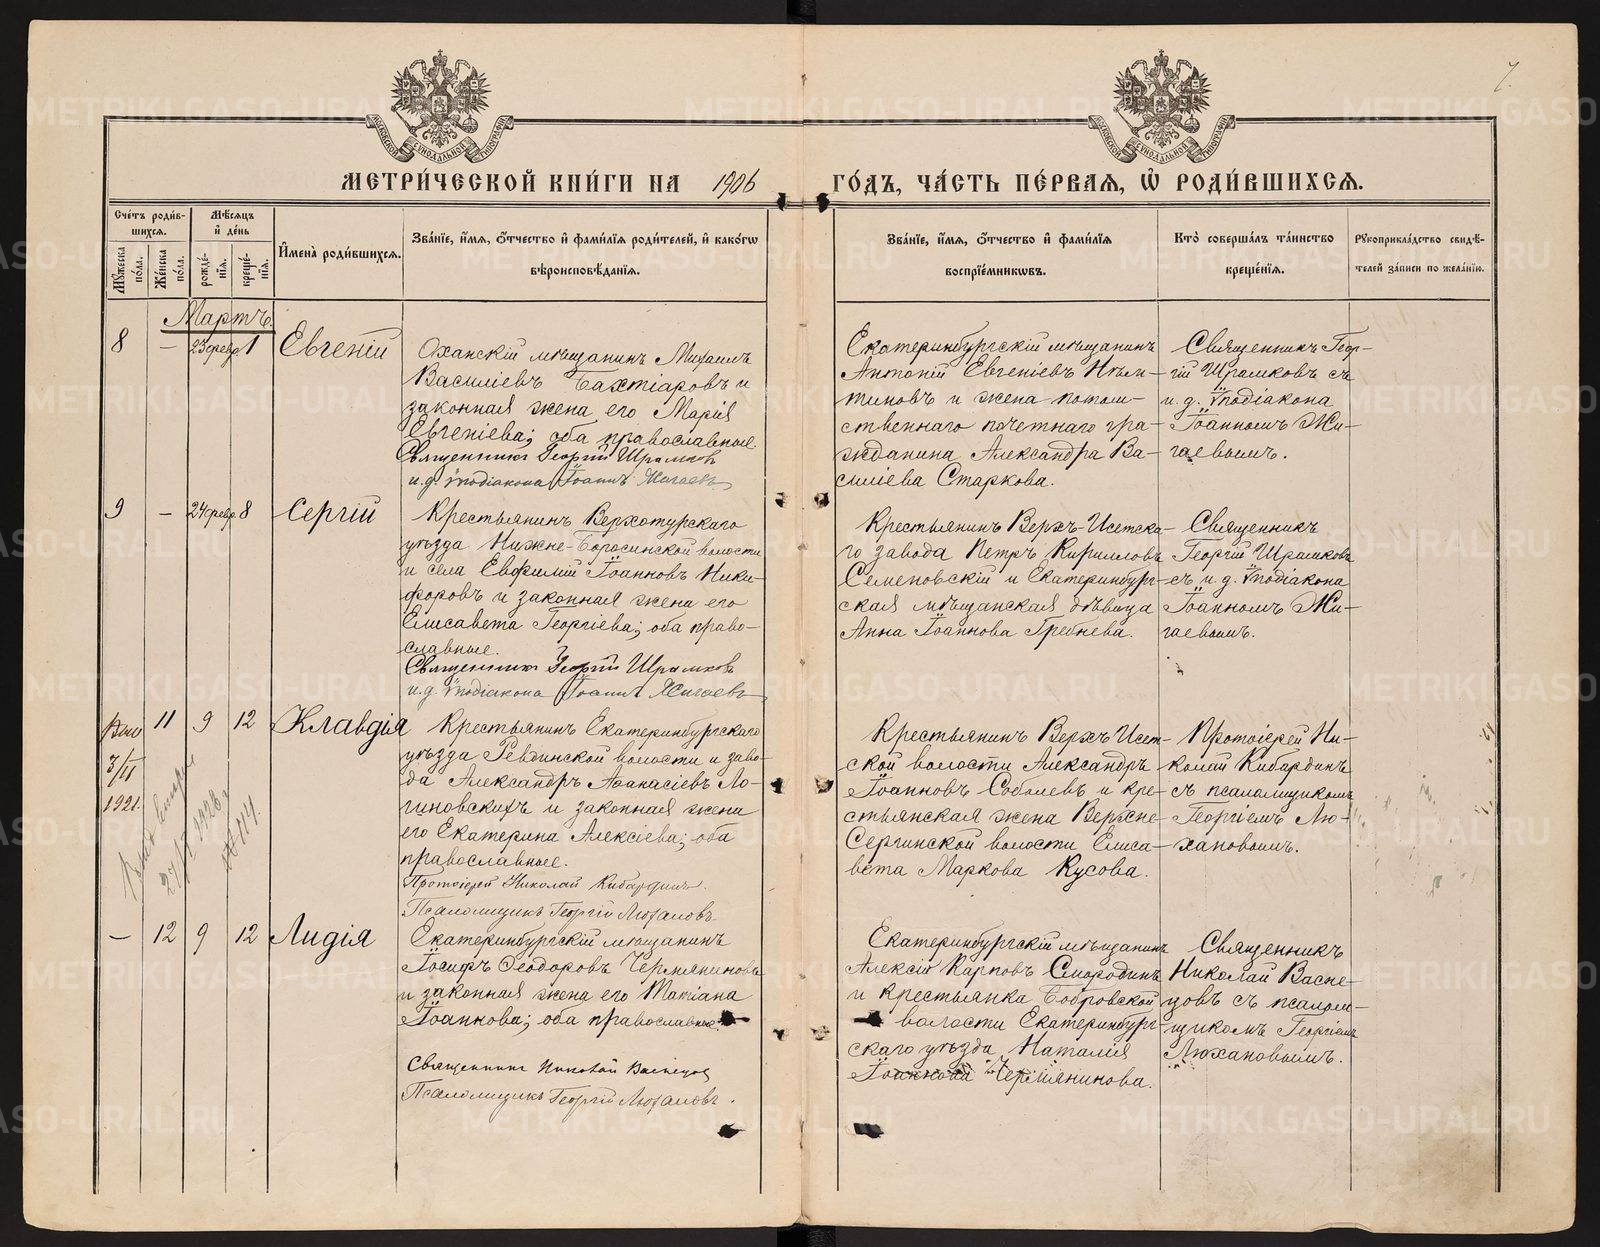 7.
МЕТРИ́ЧЕСКОЙ КНИ́ГИ НА 1906 ГО́ДЪ, ЧА́СТЬ ПЕ́РВАЯ, Ѡ РОДИ́ВШИХСЯ.
Сче́тъ роди́в-
шихся.
Мꙋ́жеска
по́ла.
Же́нска
по́ла.
Мѣ́сяцъ
и́ де́нь
рожде́-
нїя.
креще́-
нїя.
И́мена̀ роди́вшихся.
Зва́нїе, и́мя, о́тчество и́ фами́лїя роди́телей, и́ како́гѡ
вѣроисповѣ́данїя.
Зва́нїе, и́мя, о́тчество и́ фами́лїя
воспрїе́мниковъ.
Кто̀ соверша́лъ та́инство
креще́нїя.
Рꙋкоприкла́дство свидѣ́-
телей за́писи по жела́нїю.
Мартъ.
8 — 23 февр. 1 Евгеній
Оханскій мѣщанинъ Михаилъ
Василіевъ Бахтіаровъ и
законная жена его Марія
Евгеніева; оба православные.
Священникъ Георгій Шрамковъ
и. д. ѵподіакона Іоаннъ Жигаевъ
Екатеринбургскій мѣщанинъ
Антоній Евгеніевъ Нѣм-
тиновъ и жена потом-
ственнаго почетнаго гра-
жданина Александра Ва-
силіева Старкова.
Священникъ Геор-
гій Шрамковъ съ
и. д. ѵподіакона
Іоанномъ Жи-
гаевымъ.
9 — 24 февр. 8 Сергій
Крестьянинъ Верхотурскаго
уѣзда Нижне-Баранинской волости
и села Евфимій Іоанновъ Ники-
форовъ и законная жена его
Елисавета Георгіева; оба право-
славные.
Священникъ Георгій Шрамковъ
и. д. ѵподіакона Іоаннъ Жигаевъ
Крестьянинъ Верхъ-Исетска-
го завода Петръ Кирилловъ
Семеновскій и Екатеринбург-
ская мѣщанская дѣвица
Анна Іоаннова Гребнева.
Священникъ
Георгій Шрамковъ
съ и. д. ѵподіакона
Іоанномъ Жи-
гаевымъ.
11 9 12 Клавдія
3/II
1921.
Крестьянинъ Екатеринбургскаго
уѣзда Ревдинской волости и заво-
да Александръ Аѳанасіевъ Ло-
гиновскихъ и законная жена
его Екатерина Алексіева; оба
православные.
Протоіерей Николай Кибардинъ.
Псаломщикъ Георгій Люхановъ.
Крестьянинъ Верхъ Исет-
ской волости Александръ
Іоанновъ Соболевъ и кре-
стьянская жена Верхне-
Сергинской волости Елиса-
вета Маркова Кусова.
Протоіерей Ни-
колай Кибардинъ
съ псаломщикомъ
Георгіемъ Лю-
хановымъ.
— 12 9 12 Лидія
Екатеринбургскій мѣщанинъ
Іосифъ Ѳеодоровъ Чермяниновъ
и законная жена его Татіана
Іоаннова; оба православные.
Священникъ Николай Васнецов
Псаломщикъ Георгій Люхановъ.
Екатеринбургскій мѣщанинъ
Алексій Карповъ Смородинъ
и крестьянка Бобровской
волости Екатеринбург-
скаго уѣзда Наталія
Іоаннова Чермянинова.
Священникъ
Николай Васне-
цовъ съ псалом-
щикомъ Георгіемъ
Люхановымъ.
METRIKI.GASO-URAL.RU